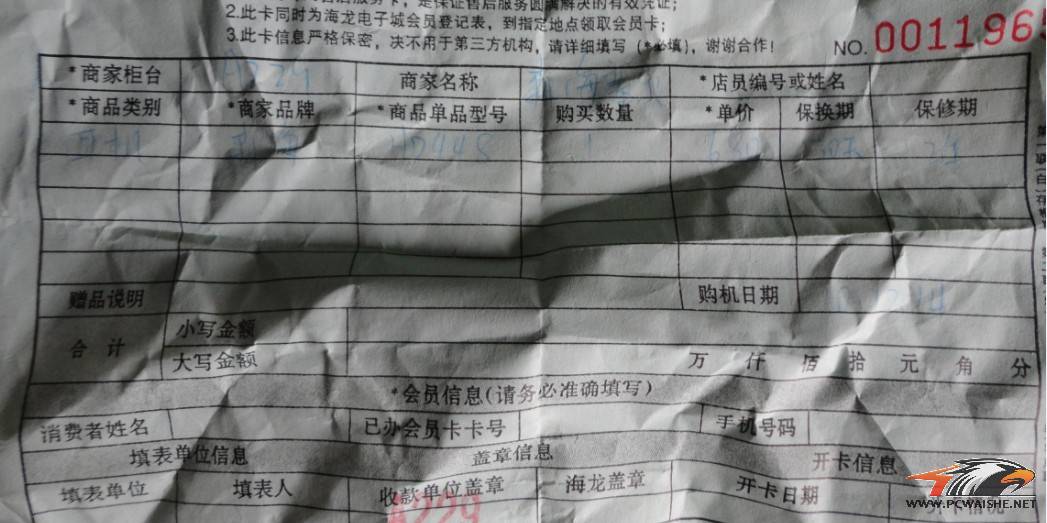 是保证售后服务圆满解决的有效凭证;
2.此卡同时为海龙电子城会员登记表，到指定地点领取会员卡;
3.此卡信息严格保密，决不用于第三方机构，请详细填写（*必填），谢谢合作!
NO. 0011965
*商家柜台 A229 商家名称 *店员编号或姓名
*商品类别 *商家品牌 *商品单品型号 购买数量 *单价 保换期 保修期
耳机 1
赠品说明 购机日期
合计 小写金额
大写金额 万 仟 佰 拾 元 角 分
*会员信息(请务必准确填写)
消费者姓名 已办会员卡卡号 手机号码
填表单位信息 盖章信息 开卡信息
填表单位 填表人 收款单位盖章 海龙盖章 开卡日期
A229
WWW.PCWAISHE.NET